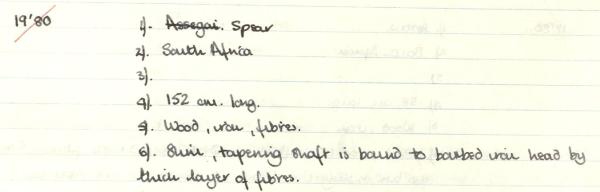 19'80
1). Assegai. Spear
2). South Africa
3).
4). 152 cm. long.
5. Wood, iron, fibres.
6). Thin, tapering shaft is bound to barbed iron head by
thin layer of fibres.